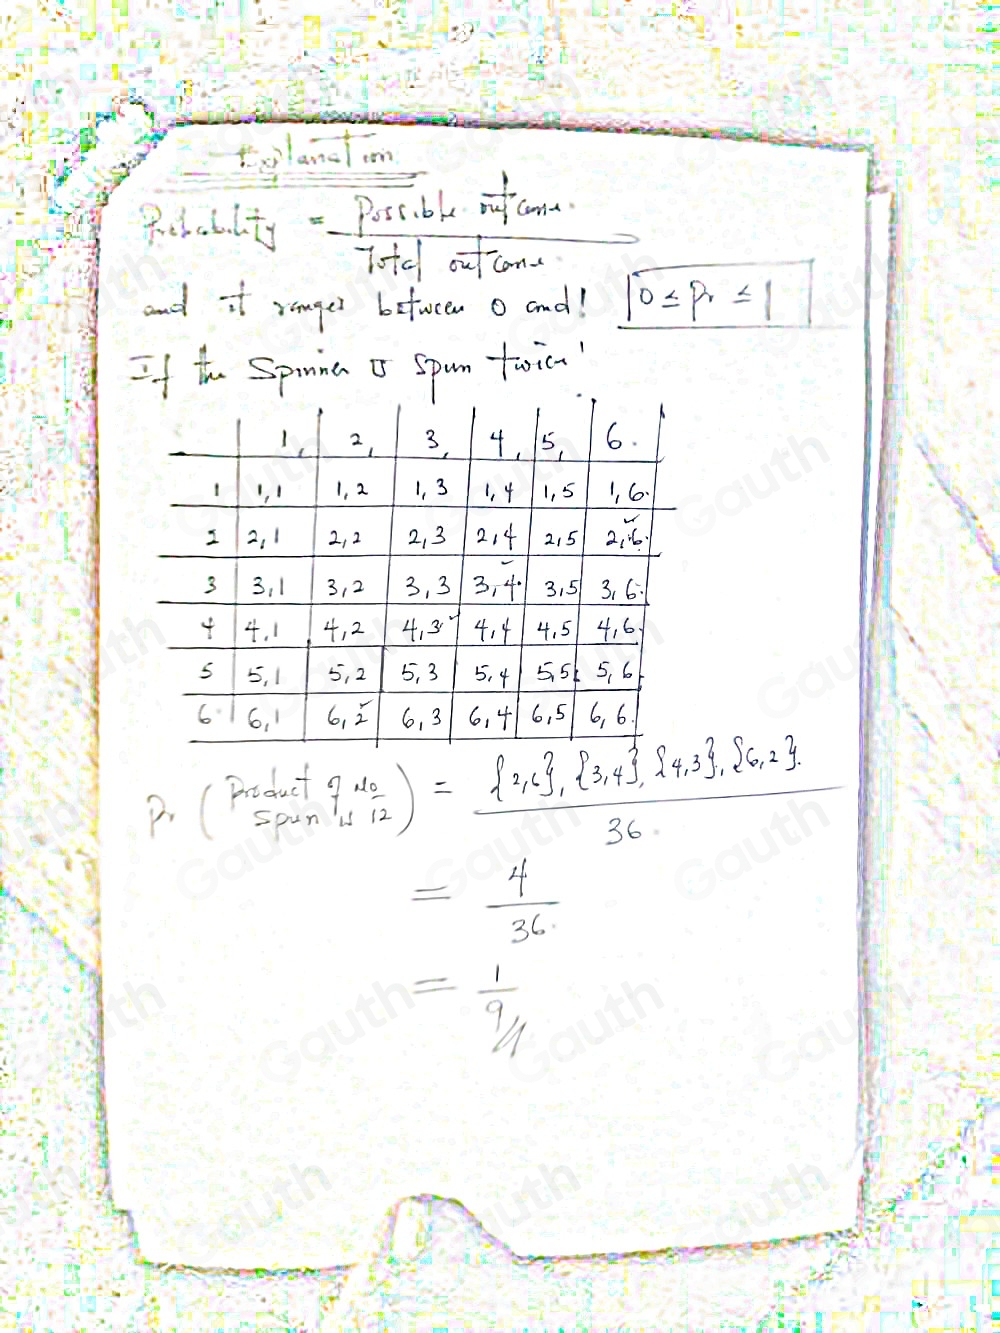 Explanation
Probability = Possible outcome.
Total outcome.
and it ranges between 0 and 1 0 ≤ Pr ≤ 1
If the Spinner is spun twice'
1, 2, 3, 4, 5, 6.
1 1,1 1,2 1,3 1,4 1,5 1,6.
2 2,1 2,2 2,3 2,4 2,5 2,6.
3 3,1 3,2 3,3 3,4. 3,5 3,6.
4 4,1 4,2 4,3 4,4 4,5 4,6.
5 5,1 5,2 5,3 5,4 5,5 5,6
6. 6,1 6,2 6,3 6,4 6,5 6,6.
Pr (Product of No spun is 12) = {2,6}, {3,4}, {4,3}, {6,2}.
36.
= 4
36.
= 1
9//